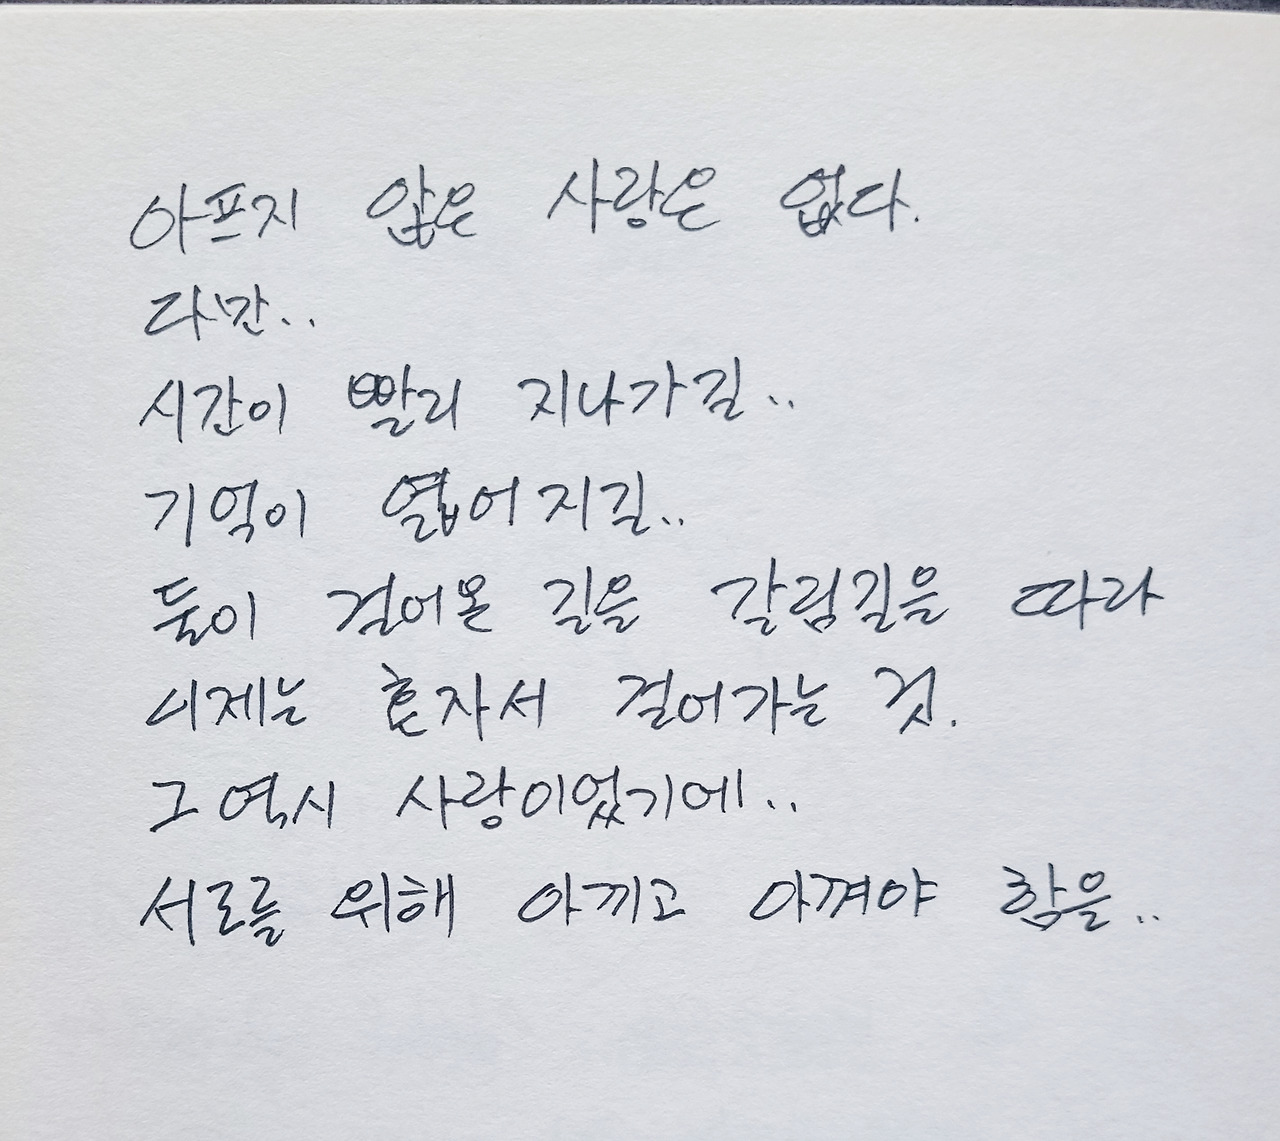 아프지 않은 사랑은 없다.
다만..
시간이 빨리 지나가길..
기억이 엷어지길..
둘이 걸어온 길을 갈림길을 따라
이제는 혼자서 걸어가는 것.
그 역시 사랑이었기에..
서로를 위해 아끼고 아껴야 함을..